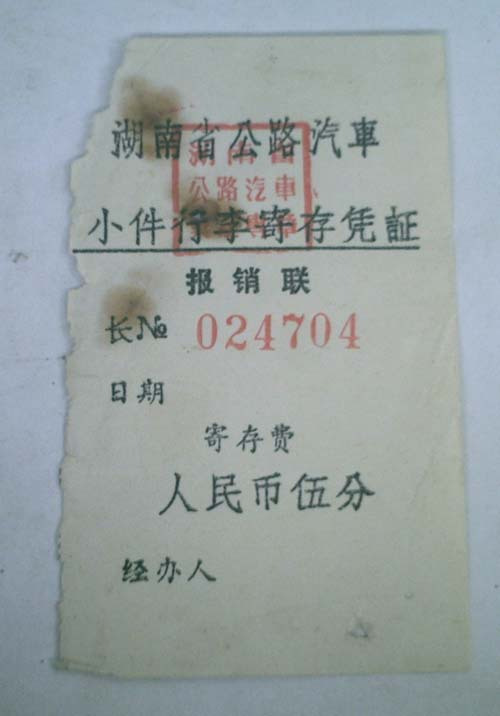 湖南省公路汽車
小件行李寄存凭証
湖南省
公路汽車
报销联
长№ 024704
日期
寄存费
人民币伍分
经办人